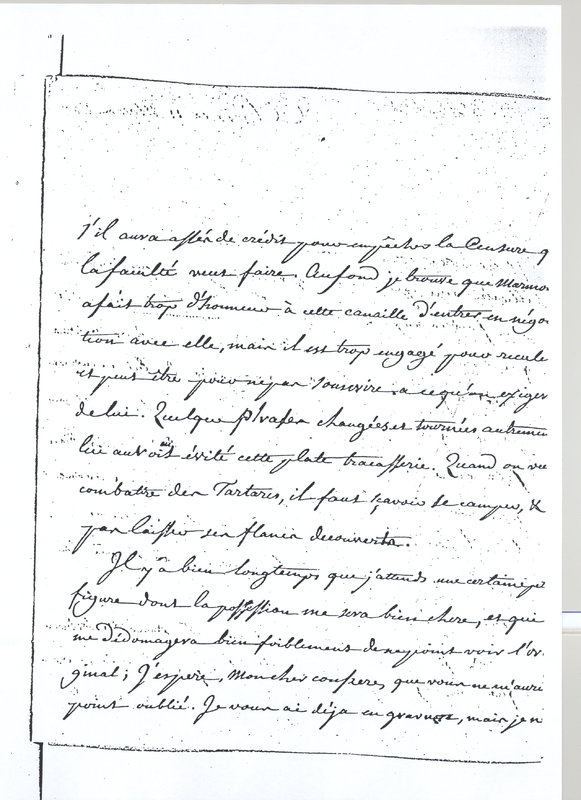 s'il aura assés de crédit pour empêcher la Censure q
la faculté veut faire. Aufond je trouve que Marmo
a fait trop d'honneur à cette canaille d'entrer en négo
tion avec elle, mais il est trop engagé pour recule
et peut être pour ne pas souscrire a ce qu'on exiger
de lui. Quelque phrases changées et tournées autremen
lui auroit évité cette plate tracasserie. Quand on va
combattre des Tartares, il faut sçavoir se camper, &
pas laisser ses flancs decouverts.
Il y a bien longtemps que j'attends une certaine
figure dont la possession me sera bien chere, et qui
me dédomagera bien foiblement de ne point voir l'or
ginal; J'espere, Mon cher confrere, que vous ne m'aure
point oublié. Je vous ai déja en gravure, mais je n